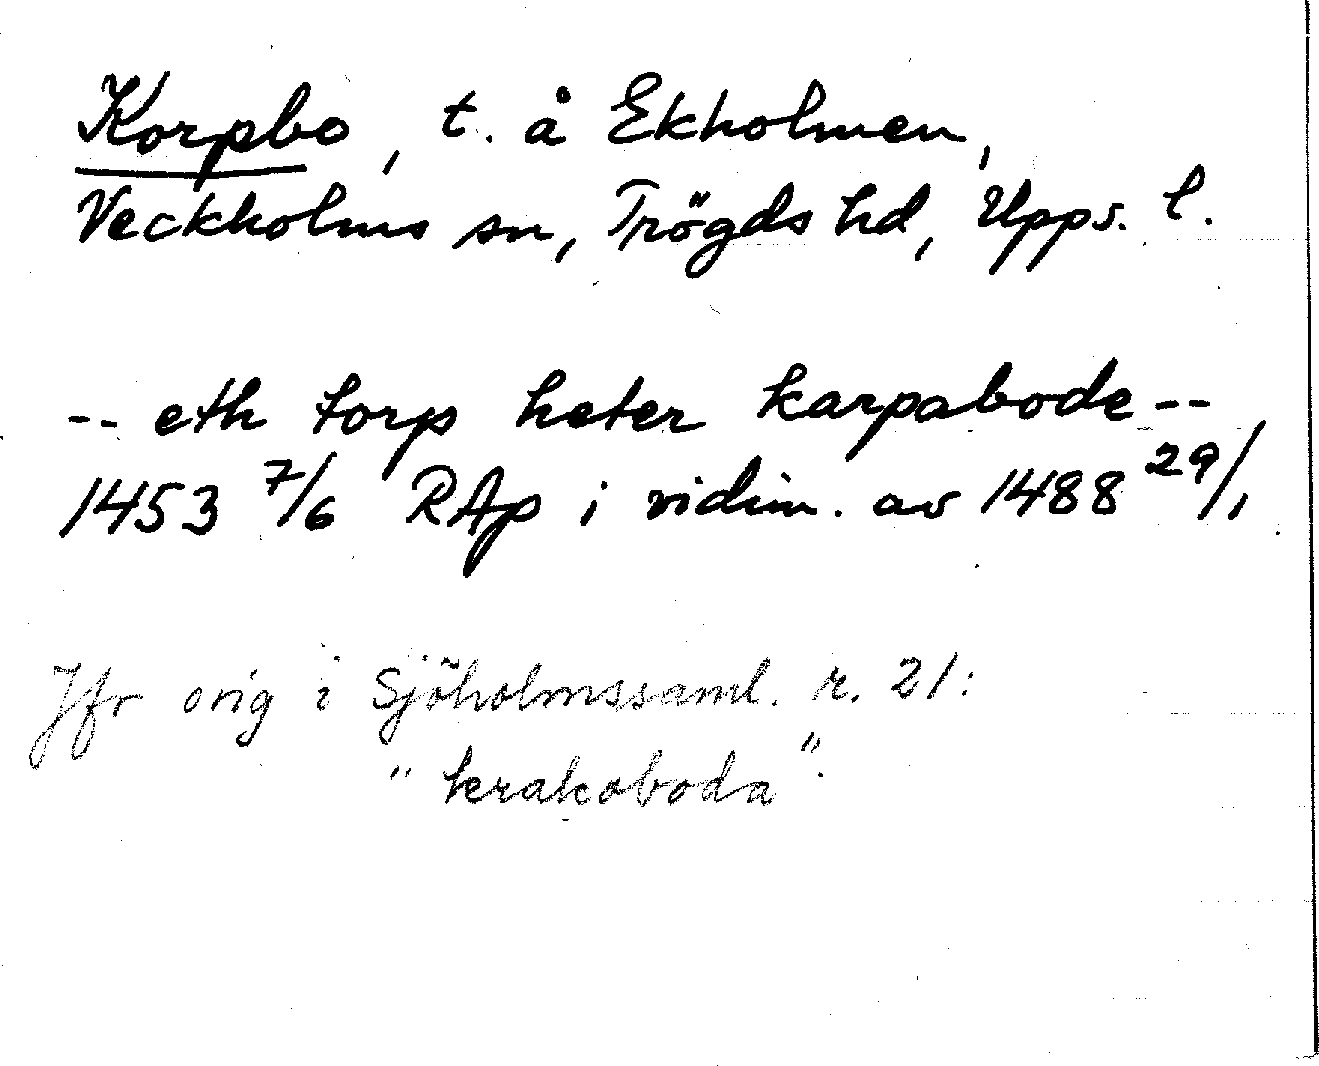 Korpbo, t. å Ekholmen,
Veckholms sn, Trögds hd, Upps. l.
-- eth torp heter karpabode --
1453 7/6 RAp i vidim. av 1488 29/1
Jfr orig i Sjöholmssaml. r. 21:
"krakoboda".